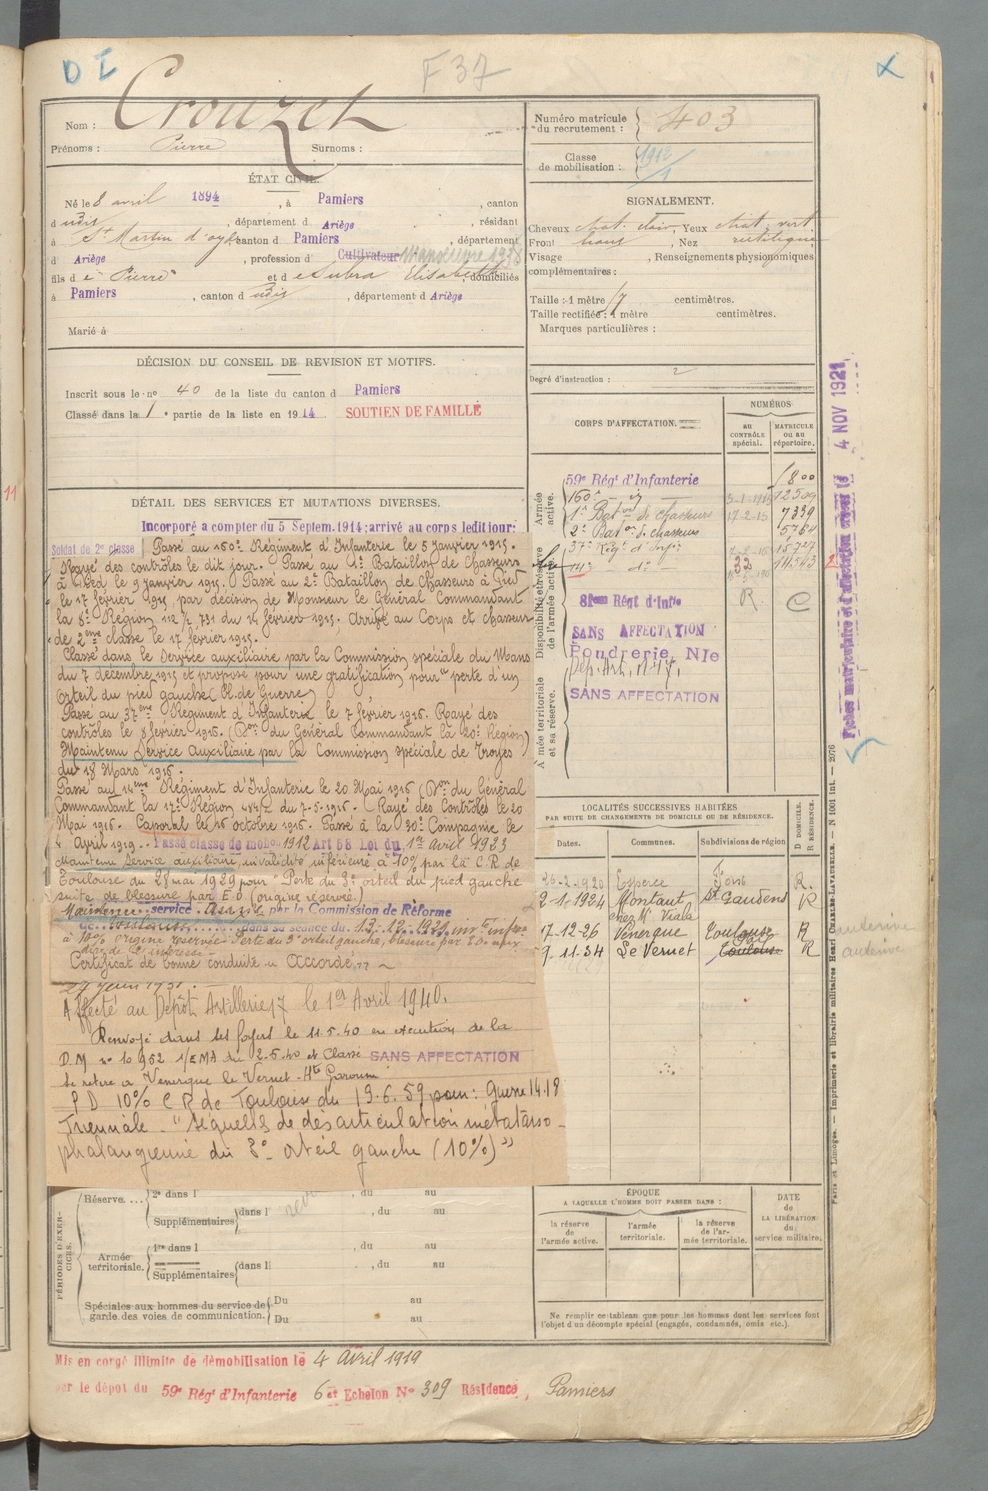 D I
F 37
X
Nom : Crouzet
Prénoms : Pierre Surnoms :
ÉTAT CIVIL.
Né le 8 avril 1894, à Pamiers, canton
d udis, département d Ariège, résidant
à St Martin d'oydes canton d Pamiers, département
d Ariège, profession d Cultivateur Manoeuvre 1938
fils de Pierre et de Subra Elisabeth, domiciliés
à Pamiers, canton d udis, département d Ariège
Marié à
Numéro matricule du recrutement : 403
Classe de mobilisation : 1912
SIGNALEMENT.
Cheveux chat. clair, Yeux chat. vert
Front haut, Nez rectiligne
Visage , Renseignements physionomiques
complémentaires :
Taille : 1 mètre 17 centimètres.
Taille rectifiée : 1 mètre centimètres.
Marques particulières :
Degré d'instruction : 2
DÉCISION DU CONSEIL DE REVISION ET MOTIFS.
Inscrit sous le n° 40 de la liste du canton d Pamiers
Classé dans la 1e partie de la liste en 1914 SOUTIEN DE FAMILLE
11
DÉTAIL DES SERVICES ET MUTATIONS DIVERSES.
Incorporé a compter du 5 Septem. 1914 : arrivé au corps ledit jour :
Soldat de 2e classe Passé au 160e Régiment d'Infanterie le 5 Janvier 1915.
Rayé des contrôles le dit jour. Passé au 1er Bataillon de Chasseurs
à Pied le 9 janvier 1915. Passé au 2e Bataillon de Chasseurs à Pied
le 17 février 1915, par décision de Monsieur le Général Commandant
la 8e Région, 731 du 14 février 1915. Arrivé au Corps et chasseur
de 2ème classe le 17 février 1915.
Classé dans le Service auxiliaire par la Commission spéciale du Mans
du 7 décembre 1915 et proposé pour une gratification pour perte d'un
orteil du pied gauche (Bl. de Guerre)
Passé au 37ème Régiment d'Infanterie le 7 février 1916. Rayé des
contrôles le 8 février 1916. (Don du Général Commandant la 20e Région)
Maintenu Service Auxiliaire par la Commission spéciale de Troyes
du 18 Mars 1916.
Passé au 14ème Régiment d'Infanterie le 20 Mai 1916 (Don du Général
Commandant la 17e Région du 7-5-1916. (Rayé des Contrôles le 20
Mai 1916. Caporal le 16 octobre 1916. Passé à la 30e Compagnie le
Avril 1919. Passé classe de mobon 1912 Art 58 Loi du 1er Avril 1923
Maintenu Service auxiliaire invalidité inférieure à 10% par la C.R. de
Toulouse du 28 mai 1929 pour "Perte du 3e orteil du pied gauche
suite de blessure par E.O. (origine réservée).
Maintenu service Auxil. par la Commission de Réforme
de Toulouse dans sa séance du 13.12.1921 inv té infre
à 10% origine réservée Perte du 3e orteil gauche, blessure par
Certificat de bonne conduite "Accordé"
Affecté au Dépôt Artillerie 17 le 1er Avril 1940.
Renvoyé dans ses foyers le 11.5.40 en exécution de la
D.M n° 10 952 1/EMA du 2.5.40 et Classé SANS AFFECTATION
Se retire à Venerque le Vernet Hte Garonne
P D 10% C R de Toulouse du 19.6.59 pour : Guerre 14.18
Triennale. "Séquelles de désarticulation métatarso-
phalangienne du 3e orteil gauche (10%)"
CORPS D'AFFECTATION.
NUMÉROS
au CONTRÔLE spécial.
MATRICULE ou au répertoire.
Armée active.
Disponibilité et réserve de l'armée active.
Armée territoriale et sa réserve.
59e Régt d'Infanterie 1800
160e 5-1-1915 12509
1er Baton de chasseurs 17-2-15 7339
2e Baton de chasseurs 5764
37e Régt d'Infie 15727
14e de 14543
32
R. C
81eme Régt d'Infie
SANS AFFECTATION
Poudrerie Nle
Dép. Art. n° 17.
SANS AFFECTATION
Fiches matriculaire et d'affectation 4 NOV 1921
LOCALITÉS SUCCESSIVES HABITÉES
PAR SUITE DE CHANGEMENTS DE DOMICILE OU DE RÉSIDENCE.
Dates. Communes. Subdivisions de région
D DOMICILE. R RÉSIDENCE.
26-2-1920 Esperce R.
2-1-1924 Montaut chez Mr Viala St Gaudens R
17-12-26 Venerque Toulouse R
9-11-34 Le Vernet Toulouse R
auterive
auterive
PÉRIODES D'EXERCICES.
Réserve. ... 2e dans l , du au
Supplémentaires dans l , du au
Armée territoriale. 1re dans l , du au
Supplémentaires dans l , du au
Spéciales aux hommes du service de garde des voies de communication. Du au
Du au
ÉPOQUE
A LAQUELLE L'HOMME DOIT PASSER DANS :
la réserve de l'armée active.
l'armée territoriale.
la réserve de l'armée territoriale.
DATE de LA LIBÉRATION du service militaire.
Ne remplir ce tableau que pour les hommes dont les services font
l'objet d'un décompte spécial (engagés, condamnés, omis etc.).
Paris et Limoges. — Imprimerie et librairie militaires Henri CHARLES-LAVAUZELLE. — N 1001 int. — 2076
Mis en congé illimité de démobilisation le 4 Avril 1919
par le dépôt du 59e Régt d'Infanterie 6e Echelon N° 309 Résidence, Pamiers